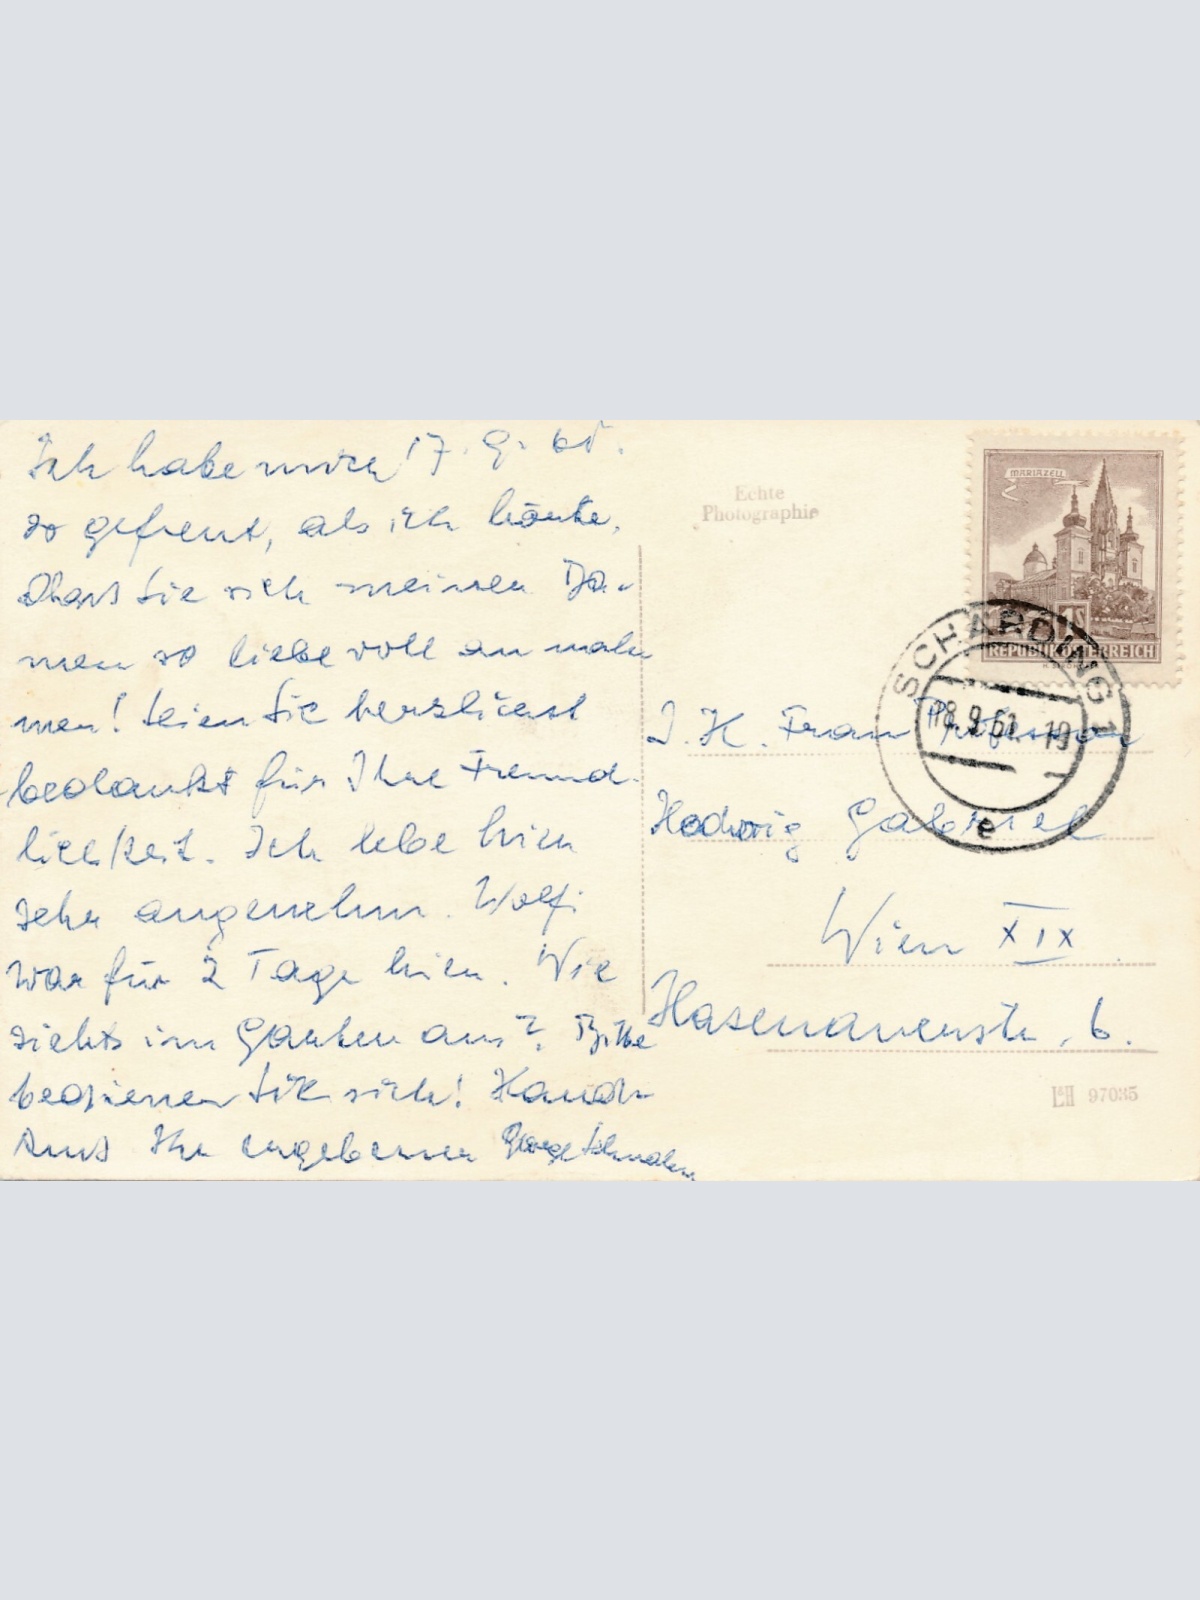 Ich habe mich 17. 9. 61.
so gefreut, als ich hörte,
dass Sie sich meiner Da-
men so liebevoll an
men! Seien Sie herzlichst
bedankt für Ihre Freund-
lichkeit. Ich lebe hier
sehr angenehm. Wolfi
war für 2 Tage hier. Wie
siehts im Garten aus? Bitte
bedienen Sie sich! Handk-
kuss Ihr ergebener
Echte
Photographie
MARIAZELL
1S
REPUBLIK ÖSTERREICH
SCHÄRDING 1
18.9.61 19
e
I. H. Frau Professor
Hedwig Gabriel
Wien XIX.
Hasenauerstr. 6.
97035